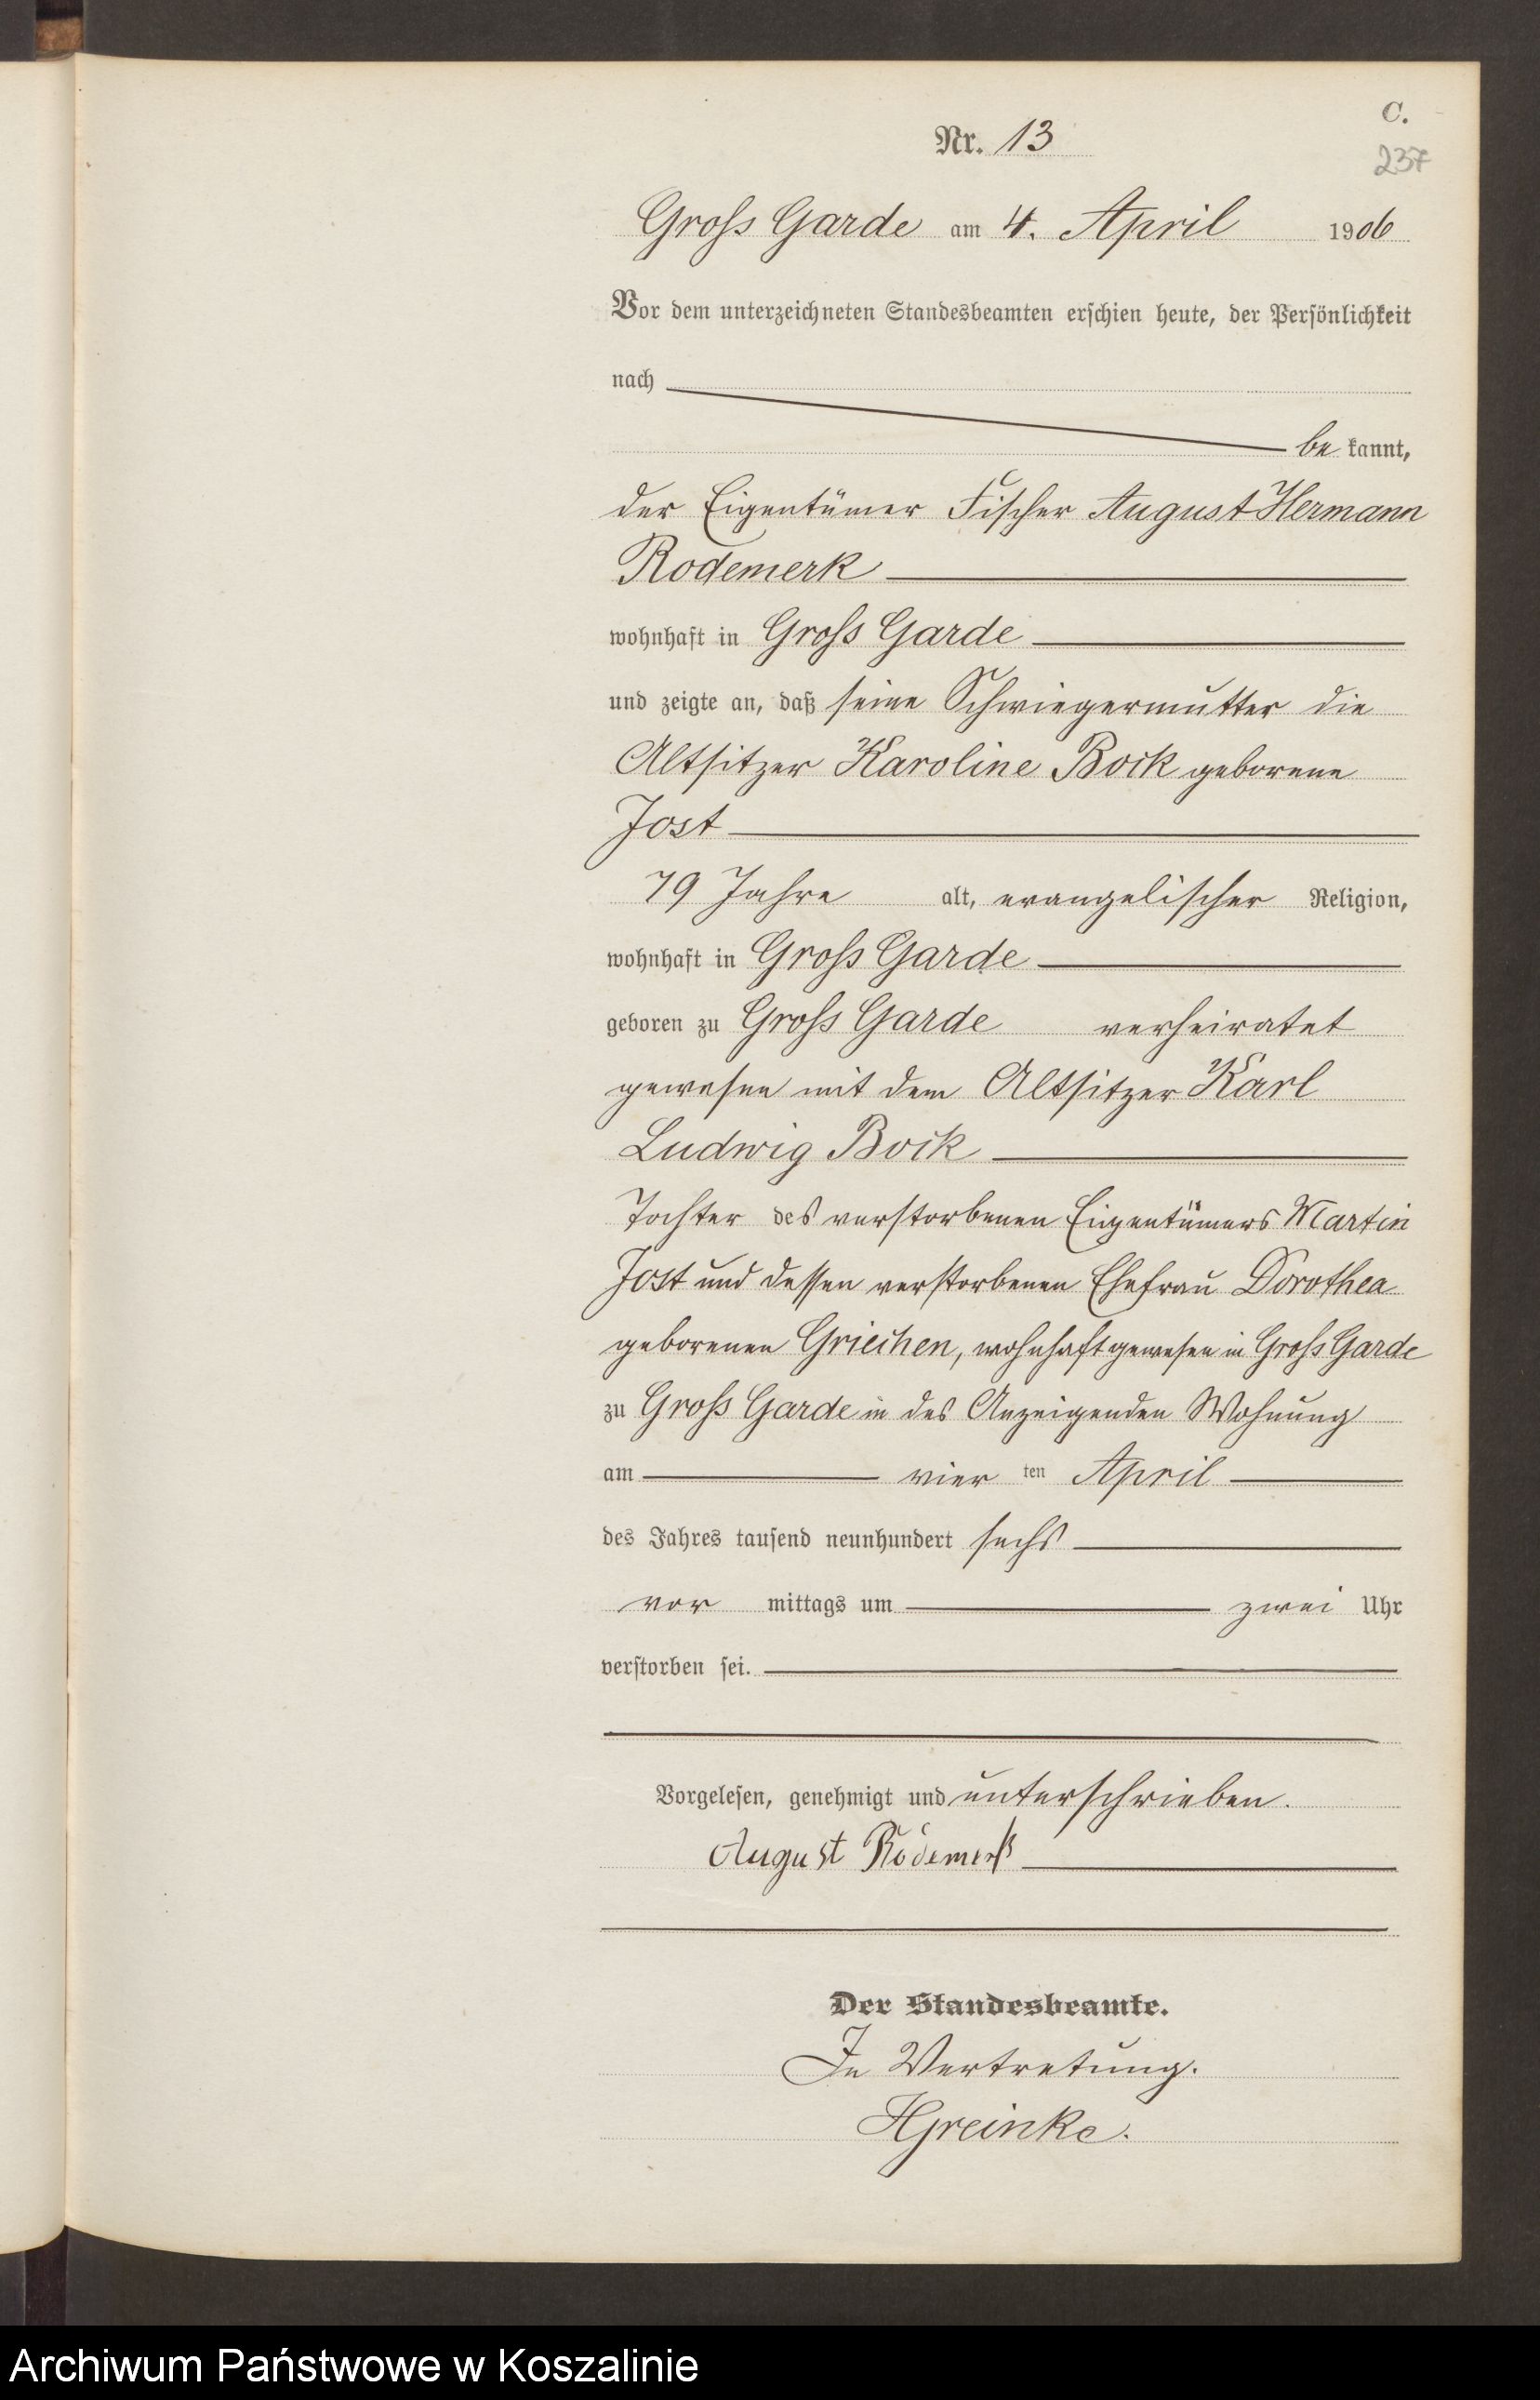 C.
Nr. 13
237
Gross Garde am 4. April 1906
Vor dem unterzeichneten Standesbeamten erschien heute, der Persönlichkeit
nach
be kannt,
der Eigentümer Fischer August Hermann
Rodemerk
wohnhaft in Gross Garde
und zeigte an, daß seine Schwiegermutter die
Altsitzer Karoline Bock geborene
Jost
79 Jahre alt, evangelischer Religion,
wohnhaft in Gross Garde
geboren zu Gross Garde verheiratet
gewesen mit dem Altsitzer Karl
Ludwig Bock
Tochter des verstorbenen Eigentümers Martin
Jost und dessen verstorbenen Ehefrau Dorothea
geborenen Griechen, wohnhaft gewesen in Gross Garde
zu Gross Garde in des Anzeigenden Wohnung
am vier ten April
des Jahres tausend neunhundert sechs
vor mittags um zwei Uhr
verstorben sei.
Vorgelesen, genehmigt und unterschrieben.
August Rodemerk
Der Standesbeamte.
In Vertretung.
HGreinke.
Archiwum Państwowe w Koszalinie